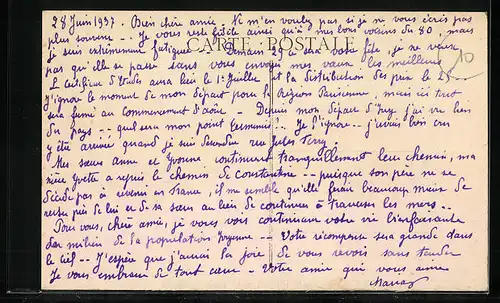 28 Juin 1937. Bien chère amie. Ne m'en voulez pas si je ne vous écris pas
plus souvent -- Je vous reste fidèle ainsi qu'à mes bons voisins du 80 mais
je suis extrêmement fatiguée. Demain 29 ce sera votre fête, je ne veux
CARTE POSTALE
pas qu'elle se passe sans vous envoyer mes vœux les meilleurs
Le certificat d'Etudes aura lieu le 1er Juillet et la distribution des prix le
J'ignore le moment de mon départ pour la Région Parisienne, mais ici tout
sera fermé au commencement d'août - Depuis mon départ d'Ivry j'ai vu bien
du pays -- quel sera mon point terminus? Je l'ignore -- j'avais bois cru
y être arrivée quand je suis descendue rue Jules Ferry
Mes sœurs Anne et Yvonne continuent tranquillement leur chemin, ma
nièce Yvette a repris le chemin de Constantine -- puisque son père ne se
décide pas à revenir en France, il me semble qu'elle ferait beaucoup mieux de
rester près de lui et de sa sœur au lieu de continuer à traverser les mers --
Pour vous, chère amie, je vous vois continuant votre vie bienfaisante
au milieu de la population Ivryenne -- Votre récompense sera grande dans
le Ciel -- J'espère que j'aurai la joie de vous revoir sans tarder
Je vous embrasse de tout cœur - Votre amie qui vous aime
10